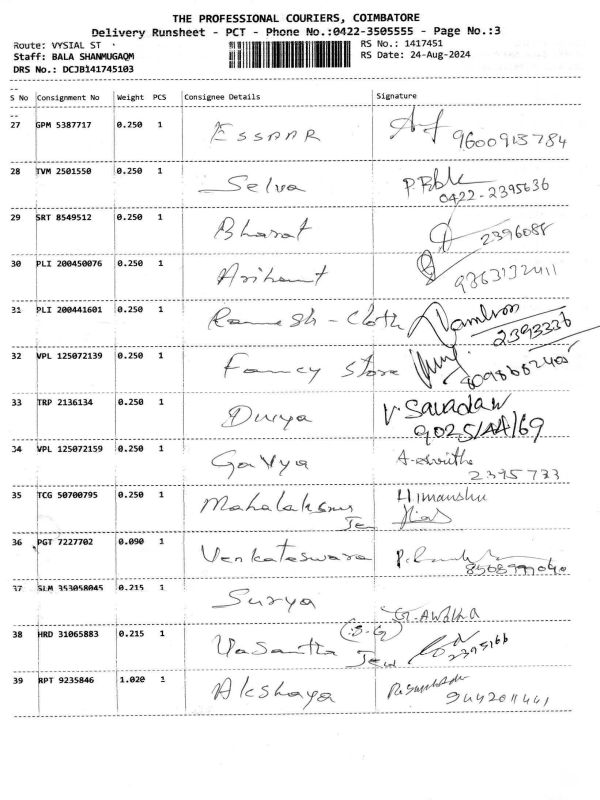 THE PROFESSIONAL COURIERS, COIMBATORE
Delivery Runsheet - PCT - Phone No.:0422-3505555 - Page No.:3
Route: VYSIAL ST RS No.: 1417451
Staff: BALA SHANMUGAQM RS Date: 24-Aug-2024
DRS No.: DCJB141745103
S No Consignment No Weight PCS Consignee Details Signature
27 GPM 5387717 0.250 1 ESSAAR
28 TVM 2501550 0.250 1 Selva
0422-2395636
29 SRT 8549512 0.250 1 Bharat 2396088
30 PLI 200450076 0.250 1 Arihant
31 PLI 200441601 0.250 1 Ramesh - Cloth
2393336
32 VPL 125072139 0.250 1 Fancy store
33 TRP 2136134 0.250 1 Divya
34 VPL 125072159 0.250 1 Gavya
2395733
35 TCG 50700795 0.250 1 Himanshu
36 PGT 7227702 0.090 1 Venkateswara
37 SLM 353058045 0.215 1 Surya
38 HRD 31065883 0.215 1 Vasantha (S-G)
Jew 2395166
39 RPT 9235846 1.020 1 Akshaya